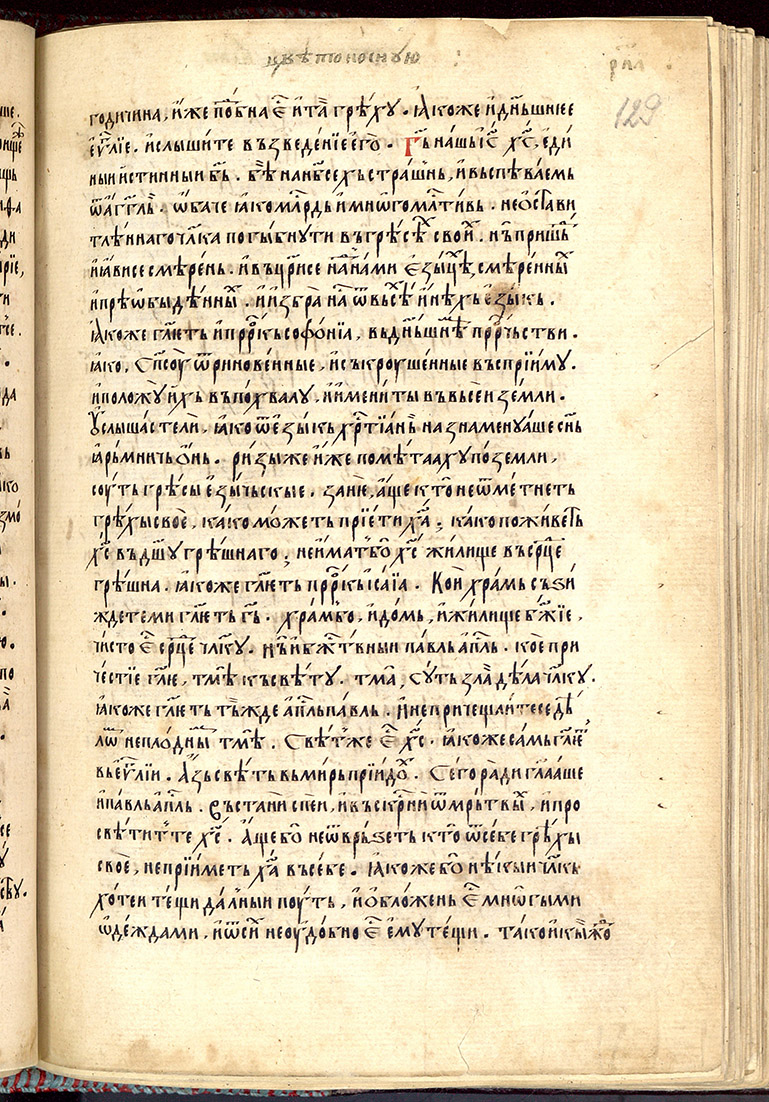 цвѣтоносную
рл҃л
129
годичина, и҆же по́бна є҆ и҆ та̀ грѣху . ꙗ҆коже и҆ дн҃ьшнꙗее
є҆ѵⷢ҇лїе . и҆слышите въ зведенїе є҆го̀ . Гь҃ нашь і҆с҃ х҃с, еди
ныи и҆стинныи б҃ь . бѣ̀ на нб҃се хь страшнь, и҆ въспѣваемь
ѿ а҆гг҃ль . ѡ҆баче ꙗ҆ко млⷭ҇рдь и҆ мнѡгомлⷭ҇тивь . не ѡ҆стави
тлѣннаго чл҃ка погыбнути въ грѣсѣⷯ свои́ . нь̀ пришⷣь
и҆ ꙗ҆висе смѣрень . и҆ въцр҃исе на́ нами є҆зы́цѣ, смѣренныⷯ
и҆ прѣѡ҆быдѣнныⷯ . и҆ и҆збра̀ на̀ ѿ въсѣ́ и҆нѣхь є҆зыкь .
ꙗ҆коже гл҃еть и҆ прⷪ҇ркь софонїа, вь дн҃ьшнѣ прⷪ҇рчьстви .
ꙗ҆ко, сп҃соу ѿриновенные, и҆ съкроушенные въсприимꙋ .
и҆ положꙋ и҆хь въ похвалꙋ, и҆ и҆мениты въ вьсеи земли .
Оу҆слышастели, ꙗ҆ко ѿ є҆зыкь хрⷭ҇тїань назнаменꙋаше сь́нь
ꙗ҆рьмничь ѻ҆нь . ризы же и҆же помѣтаахꙋ по земли,
соуть грѣсы є҆зычьскые . зане, а҆ще кто̀ не ѿметнеть
грѣхы своѐ, како можеть прїети х҃а ; како поживеть
х҃с въ дш҃ꙋ грѣшнаго ; не и҆мать бо х҃с жилище въ срⷣце
грѣшна . ꙗ҆коже гл҃еть прⷪ҇ркь і҆саїа . Кои҆ храмь съзи
ждете ми гл҃еть г҃ь . храм бо, и҆ домь, и҆ жилище бж҃їе,
чисто є҆ срⷣце чл҃кꙋ . нь и҆ бжⷭ҇твныи павль а҆пⷭ҇ль . кое при
честїе гл҃ю, тмѣ къ свѣту . тма̀, суть зла̀ дѣла чл҃кꙋ .
ꙗ҆коже гл҃еть тьжде а҆пⷭ҇ль павль . И҆ не причещаитесе дѣ
лѡⷨ неплоднымь тмѣ . Свѣт же є҆ х҃с . ꙗ҆коже самь гл҃еть
вь є҆ѵⷢ҇лїи . А҆зь свѣть вь мирь прїидоⷯ . Сего ради гл҃ааше
и҆ павль а҆пⷭ҇ль . Въстани спеи, и҆ въскрⷭ҇ни ѿ мрьтвыⷯ, и҆ про
свѣтит те х҃с . А҆ще бо не ѿврьзеть кто̀ ѿ себе грѣхы
своѐ, не прїиметь х҃а въ себе . ꙗ҆коже бо нѣкыи чл҃кь
хотеи тещи далныи поуть, и҆ ѻ҆бложень є҆ мнѡгыми
ѡ҆деждами, и҆ ѿ сиⷯ неоудобно є҆ є҆мꙋ тещи . тако и҆ кыⷤжⷣо